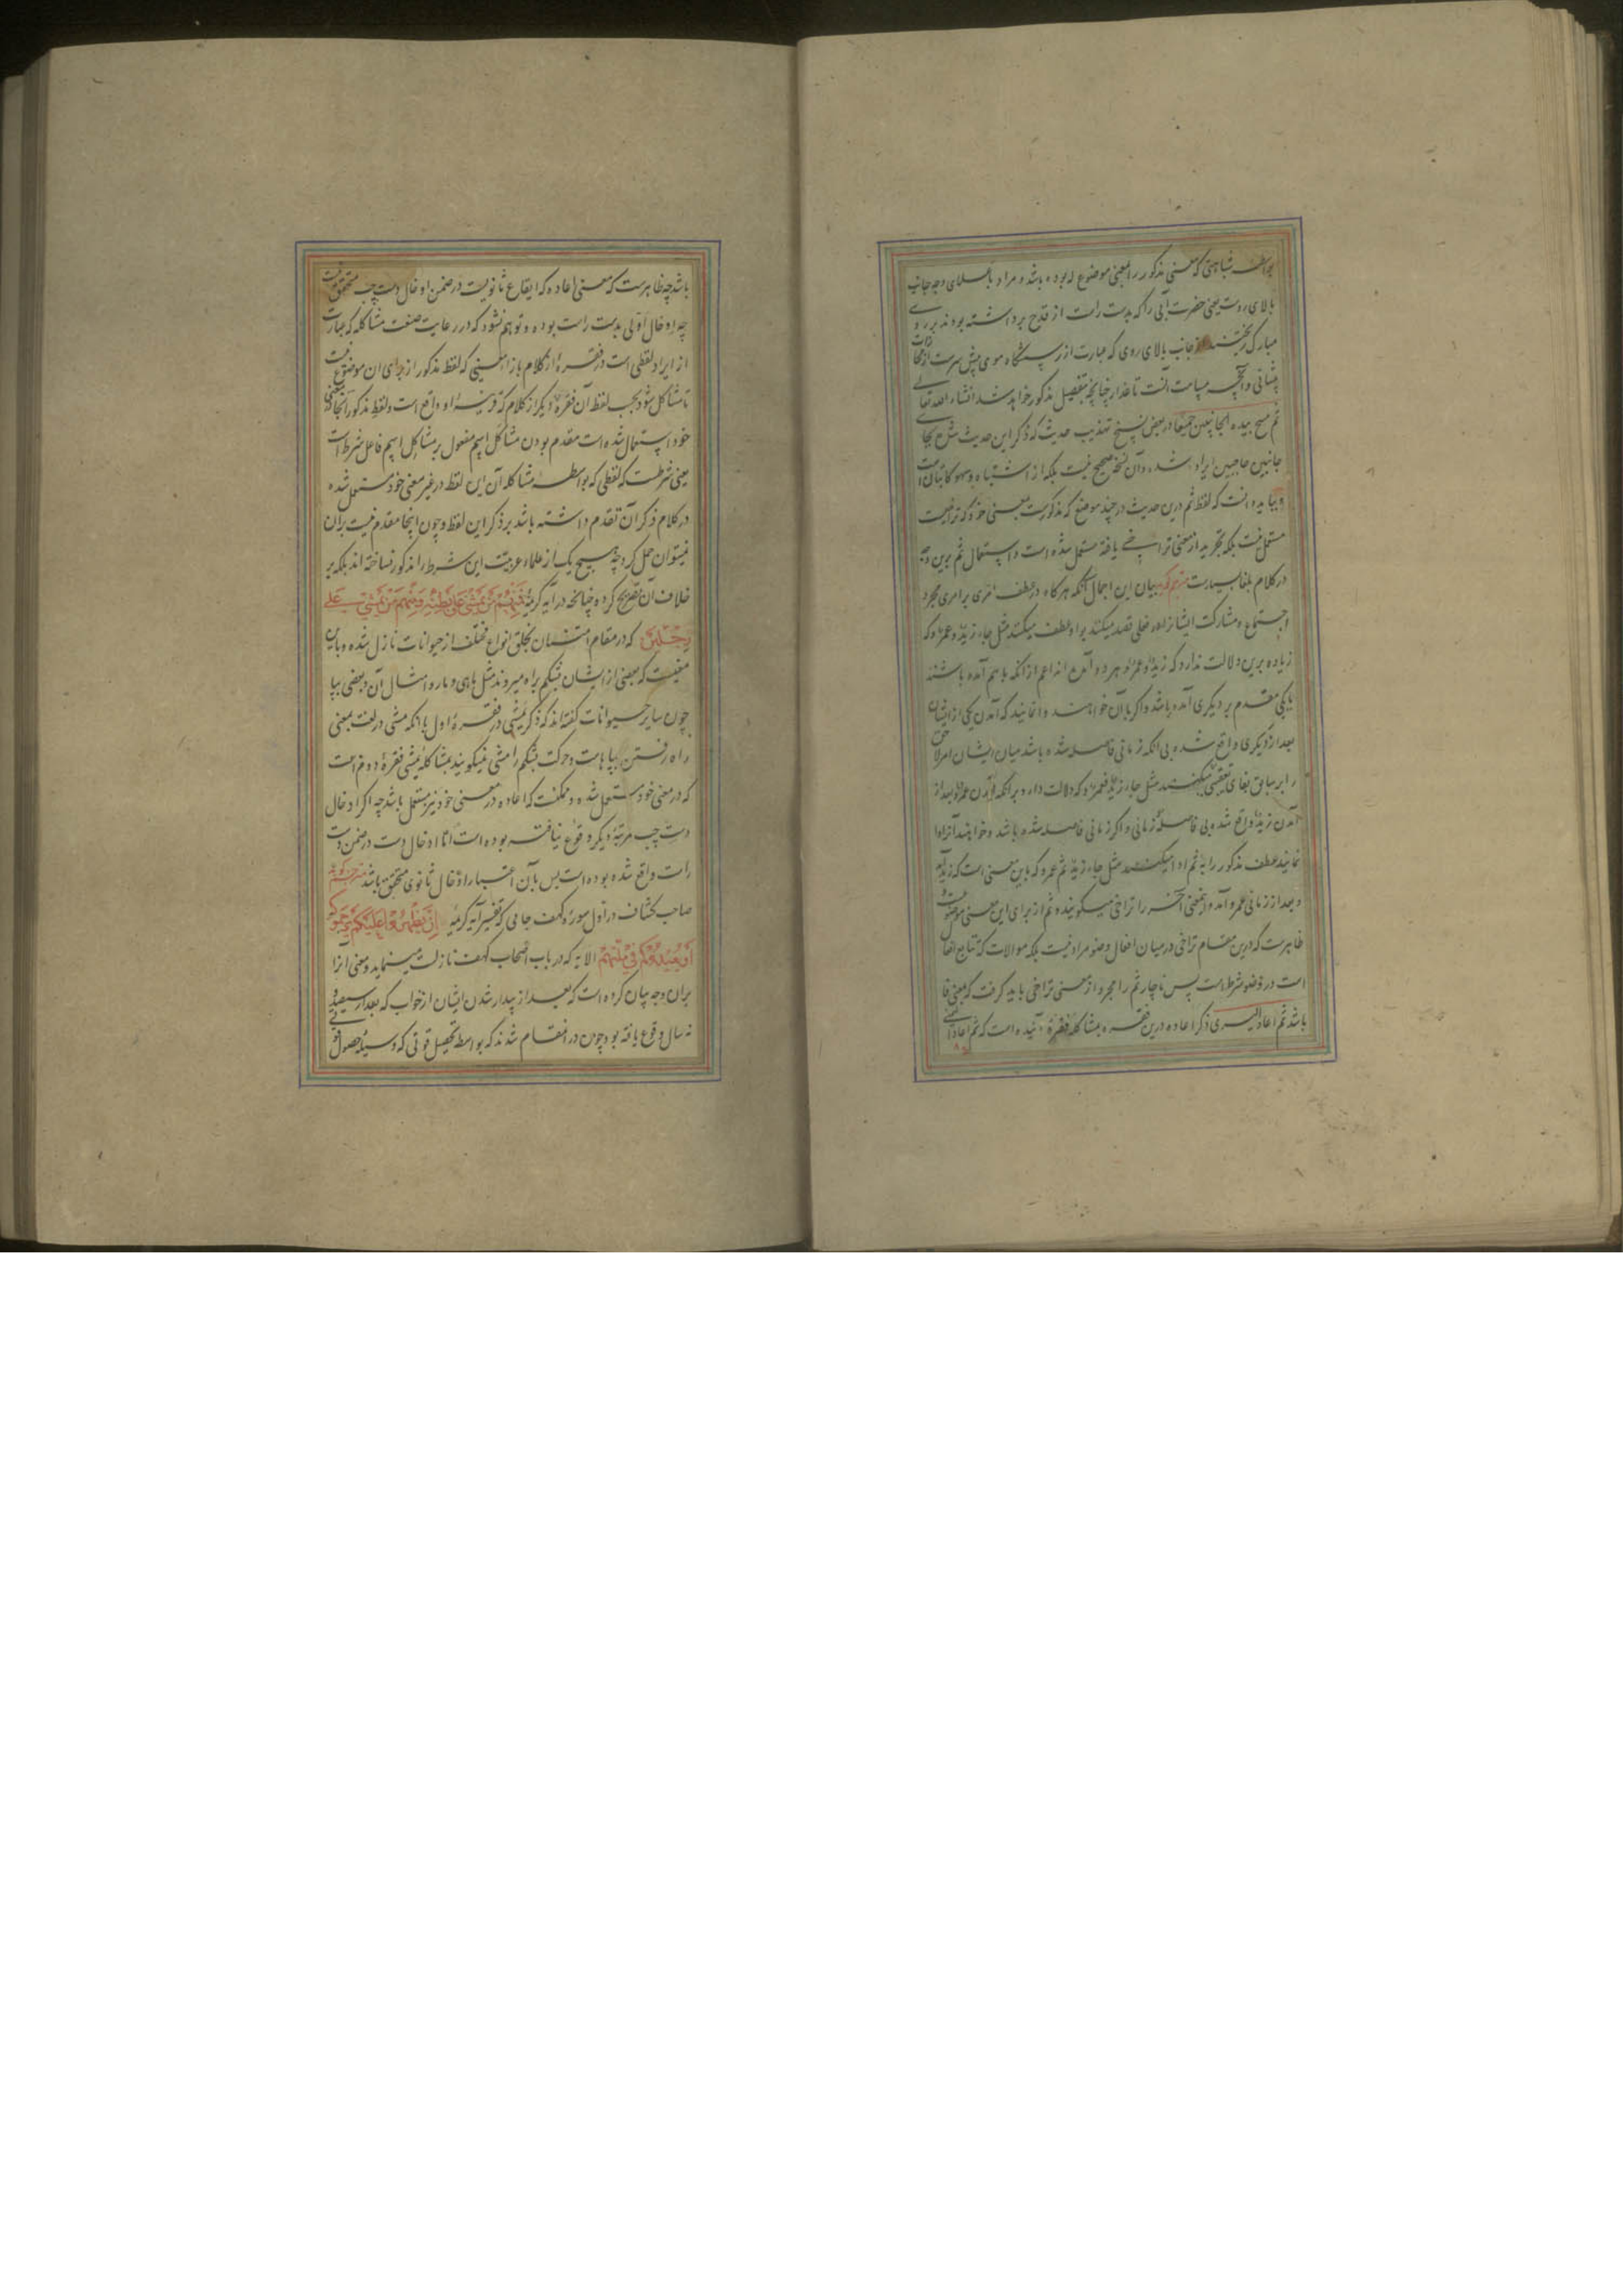 بواسطه شباهتی که معنی مذکور را بمعنی موضوع له بوده باشد و مراد باعلای وجه جانب
بالای روست یعنی حضرت آبی را که بدست راست از قدح برداشته بودند بر روی
مبارک ریختند از جانب بالای روی که عبارت از رستنگاه موی پیش سرست
پیشانی و آنچه مسامت آنست تا عذار چنانچه بتفصیل مذکور خواهد شد انشاء الله تعالی
ثم مسح بیده الجانبین جمیعا در بعض نسخ تهذیب حدیث که ذکر این حدیث شده بجای
جانبین حاجبین ایراد شده و آن نسخه صحیح نیست بلکه از اشتباه و سهو کاتبان است
و بباید دانست که لفظ ثم درین حدیث در چند موضع که مذکورست بمعنی خود که تراخیست
مستعمل نیست بلکه تجرید از معنی تراخی یافته مستعمل شده است و استعمال ثم برین وجه
در کلام بلغا بسیارست مترجم گوید بیان این اجمال آنکه هرگاه در عطف امری بر امری مجرد
اجتماع و مشارکت ایشان در فعلی قصد میکنند بواو عطف میکنند مثل جاء زید و عمرو که
زیاده برین دلالت ندارد که زید و عمرو هر دو آمده اند اعم از انکه با هم آمده باشند
یا یکی مقدم بر دیگری آمده باشد و اگر با آن خواهند وانمایند که آمدن یکی از ایشان
بعد از دیگری واقع شده بی آنکه زمانی فاصله شده باشد میان ایشان امر لاحق
را بر سابق بفای تعقیبی میکنند مثل جاء زید فعمرو که دلالت دارد بر آنکه آمدن عمرو بعد از
آمدن زید واقع شد و بی فاصله زمانی و اگر زمانی فاصله شده باشد و خواهند آنرا وا
نمایند عطف مذکور را به ثم ادا میکنند مثل جاء زید ثم عمرو که باین معنی است که زید آمد
و بعد از زمانی عمرو آمد و این معنی آخر را تراخی میگویند و ثم از برای این معنی موضوعست
ظاهرست که درین مقام تراخی در میان افعال وضو مراد نیست بلکه موالات که تتابع افعال
است در وضو شرط است پس ناچار ثم را مجرد از معنی تراخی باید گرفت که بمعنی فا
باشد ثم اعاد الیسری ذکر اعاده درین فقره بمشاکله فقره آینده است که ثم اعاد
باشد چه ظاهرست که معنی اعاده که ایقاع ثانویست در ضمن ادخال دست چپ متحقق نیست
چه ادخال اولی بدست راست بوده و توهم نشود که در رعایت صنعت مشاکله که عبارت
از ایراد لفظی است در فقره از کلام بازاء معنیی که لفظ مذکور از برای ان موضوع نیست
تا مشاکل شود بحسب لفظ آن فقره دیگر از کلام که قرینه او واقع است و لفظ مذکور آنجا بمعنی
خود استعمال شده است مقدم بودن مشاکل اسم مفعول بر مشاکل اسم فاعل شرط است
یعنی شرطست که لفظی که بواسطه مشاکله آن این لفظ در غیر معنی خود مستعمل شده
در کلام ذکر آن تقدم داشته باشد بر ذکر این لفظ و چون اینجا مقدم نیست بران
نمیتوان حمل کرد چه هیچ یک از علماء عربیت این شرط را مذکور نساخته اند بلکه بر
خلاف آن تصریح کرده چنانچه در آیه کریمه فَمِنْهُمْ مَنْ یَمْشِی عَلَی بَطْنِهِ وَمِنْهُمْ مَنْ یَمْشِی عَلی
رِجْلَیْنِ که در مقام امتنان بخلق انواع مختلف از حیوانات نازل شده و باین
معنیست که بعضی از ایشان بشکم براه میروند مثل ماهی و مار و امثال آن و بعضی بپا
چون سایر حیوانات گفته اند که ذکر یمشی در فقره اول با انکه مشی در لغت بمعنی
راه رفتن بپاهاست و حرکت بشکم را مشی نمیگویند بمشاکله یمشی فقره دوم است
که در معنی خود مستعمل شده و ممکنست که اعاده در معنی خود نیز مستعمل باشد چه اگر ادخال
دست چپ مرتبه دیگر وقوع نیافته بوده است اما ادخال دست در ضمن دست
راست واقع شده بوده است پس بآن اعتبار ادخال ثانوی متحقق باشد مترجم گوید
صاحب کشاف در اول سوره کهف جایی که تفسیر آیه کریمه إِنْ یَظْهَرُوا عَلَیْکُمْ یَرْجُمُوکُمْ
أَوْ یُعِیدُوکُمْ فِی مِلَّتِهِمْ الایه که در باب اصحاب کهف نازلست مینماید و معنی آنرا
بران وجه بیان کرده است که بعد از بیدار شدن ایشان از خواب که بعد از سیصد و
نه سال وقوع یافته بود چون در انمقام شدند که بواسطه تحصیل قوتی که وسیله حصول